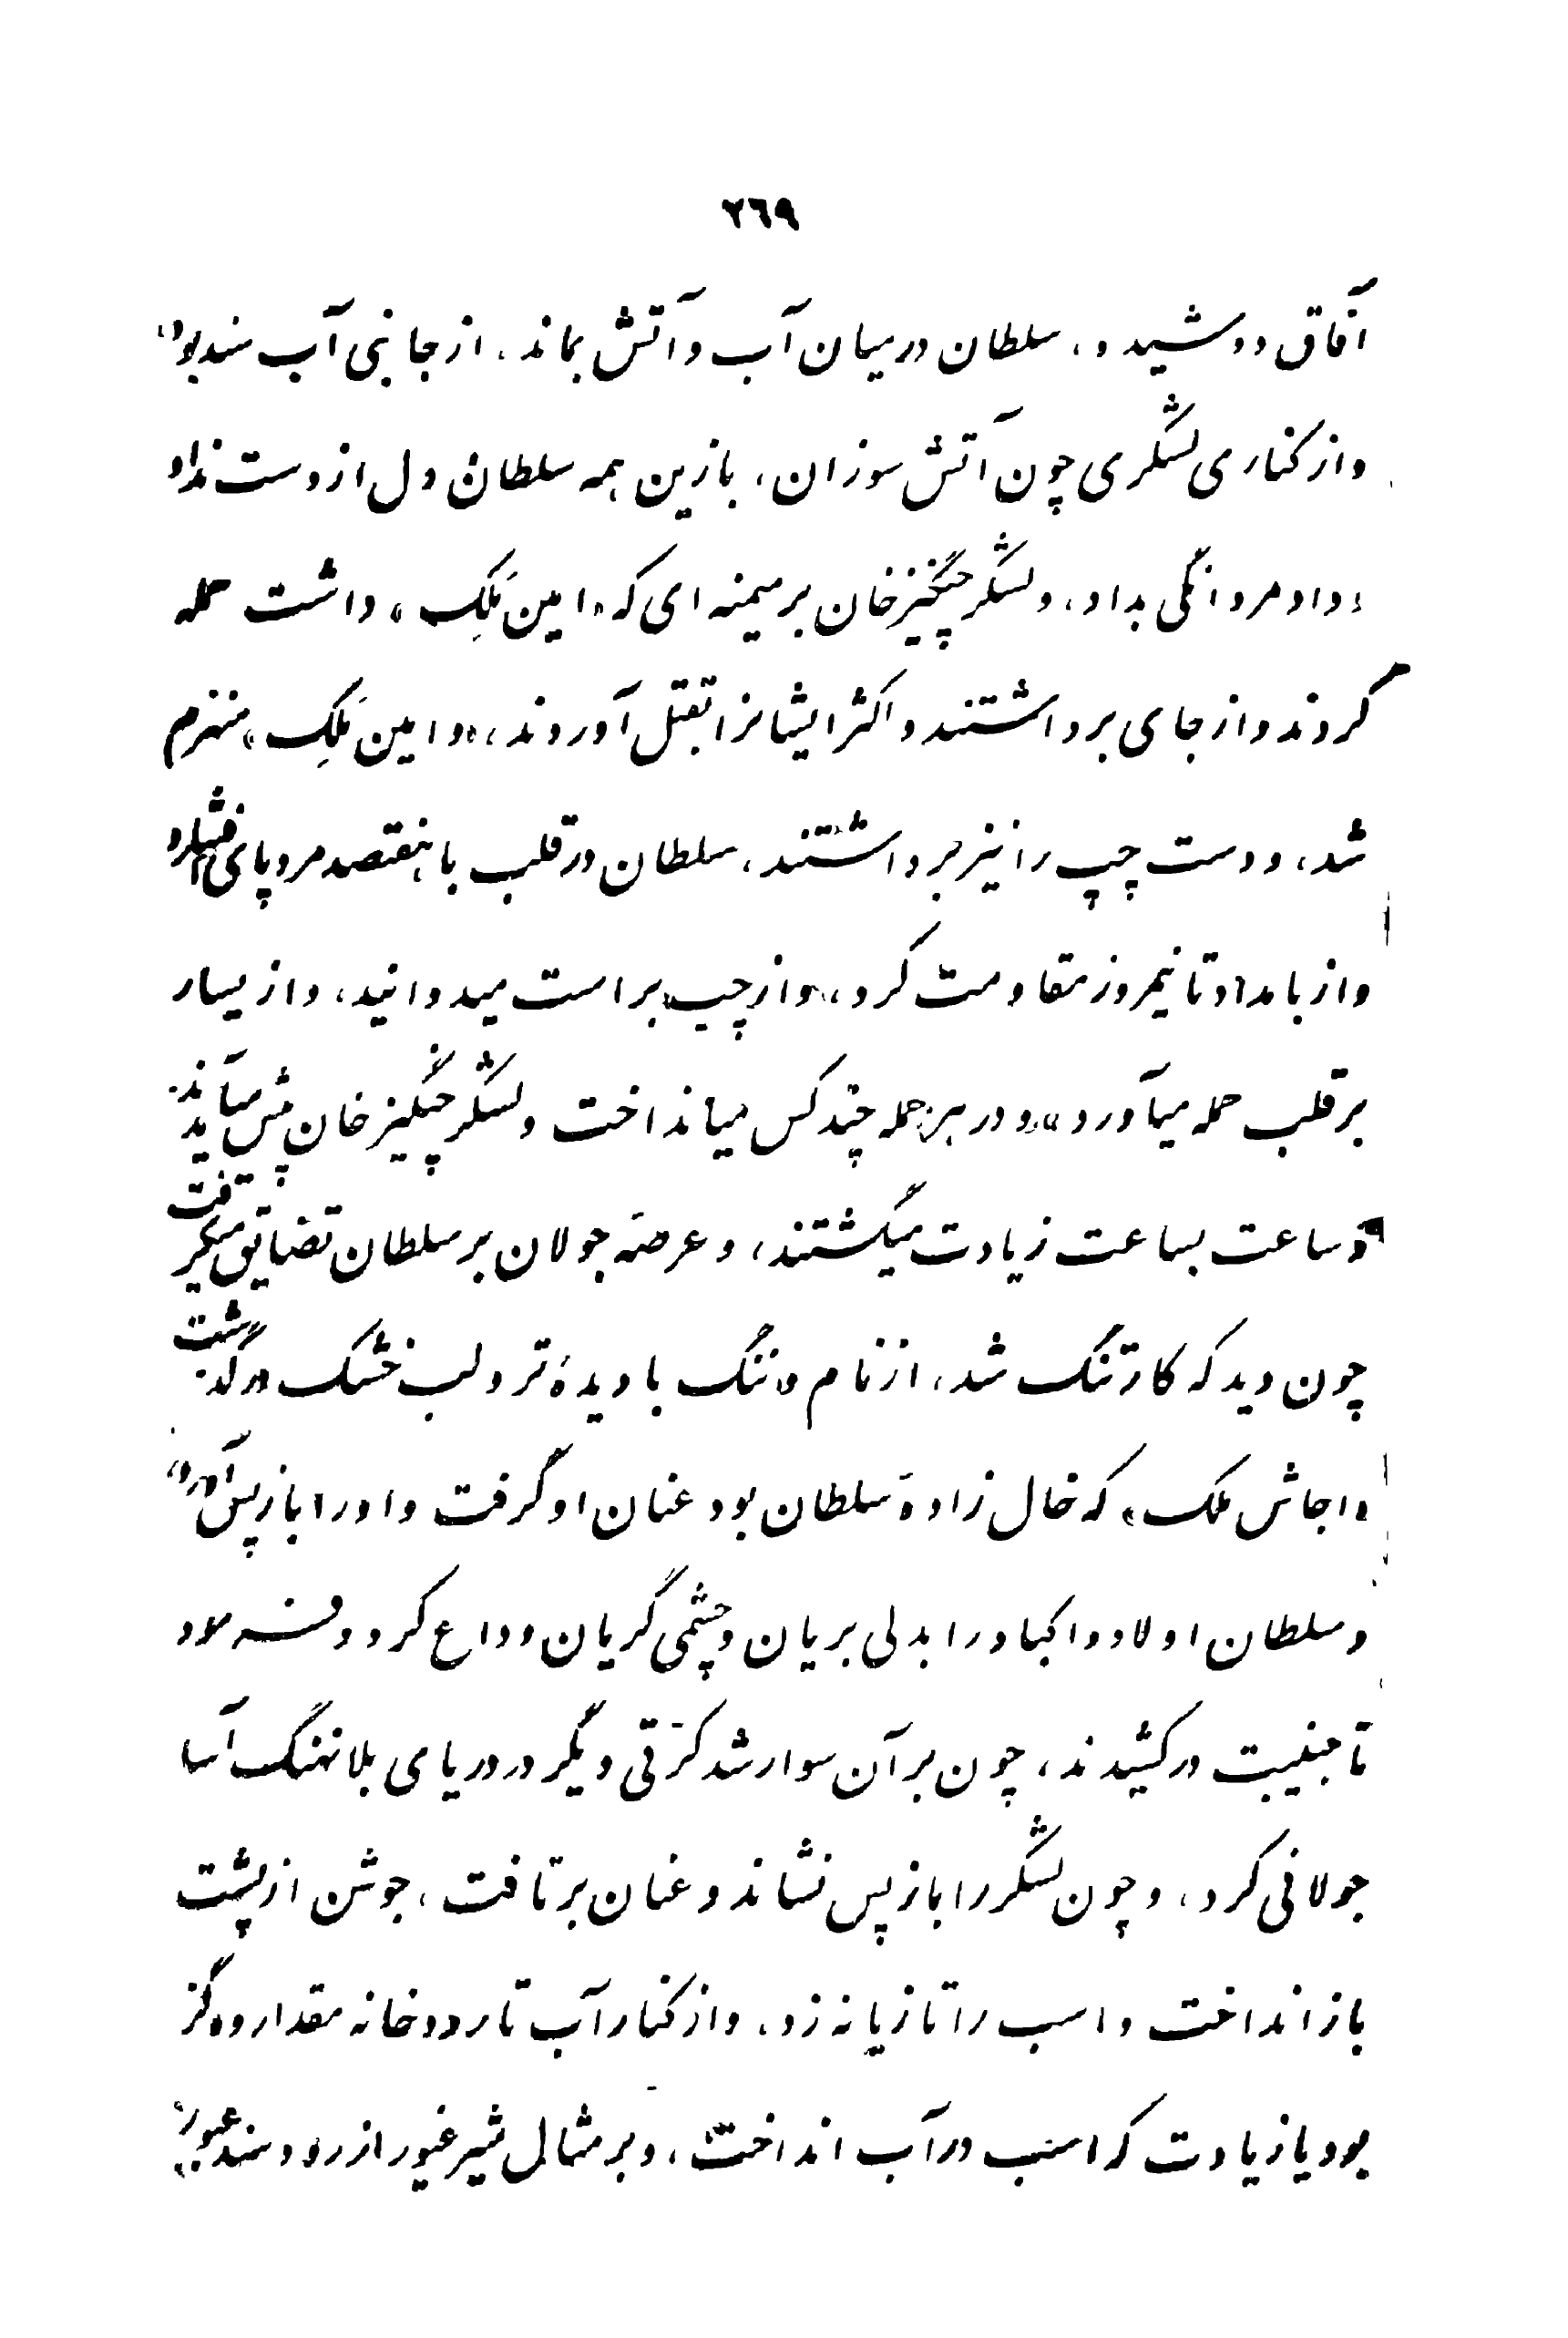 ٢٦٩
آفاق دوشید و، سلطان در میان آب و آتش بماند، از جانبی آب سند بود،
و از کناری لشگری چون آتش سوزان، بازین همه سلطان دل از دست نداد
و داد مردانگی بداد، و لشگر چنگیز خان بر میمنه ای که «امین مَلِک» داشت حمله
کردند و از جای برداشتند و اکثر ایشانرا بقتل آوردند، «و امین مَلِک» منهزم
شد، و دست چپ را نیز برداشتند، سلطان در قلب با هفتصد مرد پای افشارد
و از بامداد تا نیمروز مقاومت کرد، و از چپ براست میدوانید، و از یسار
بر قلب حمله میآورد، و در هر حمله چند کس میانداخت و لشگر چنگیز خان پیش میآیند
و ساعت بساعت زیادت میگشتند، و عرصهٔ جولان بر سلطان تضایق میگرفت
چون دید که کار تنگ شد، از نام و ننگ با دیدهٔ تر و لب خشک درگذشت
«اجاش ملک» که خال زادهٔ سلطان بود عنان او گرفت و او را باز پس آورد،
و سلطان اولاد و اکباد را بدلی بریان و چشمی گریان وداع کرد و فرمود
تا جنیبت درکشیدند، چون بر آن سوار شد کرّتی دیگر در دریای بلا نهنگ آسا
جولانی کرد، و چون لشگر را باز پس نشاند و عنان بر تافت، جوشن از پشت
باز انداخت و اسب را تازیانه زد، و از کنار آب تا رودخانه مقدار ده گز
بود یا زیادت که اسب در آب انداخت، و بر مثال شیر غیور از رود سند عبور